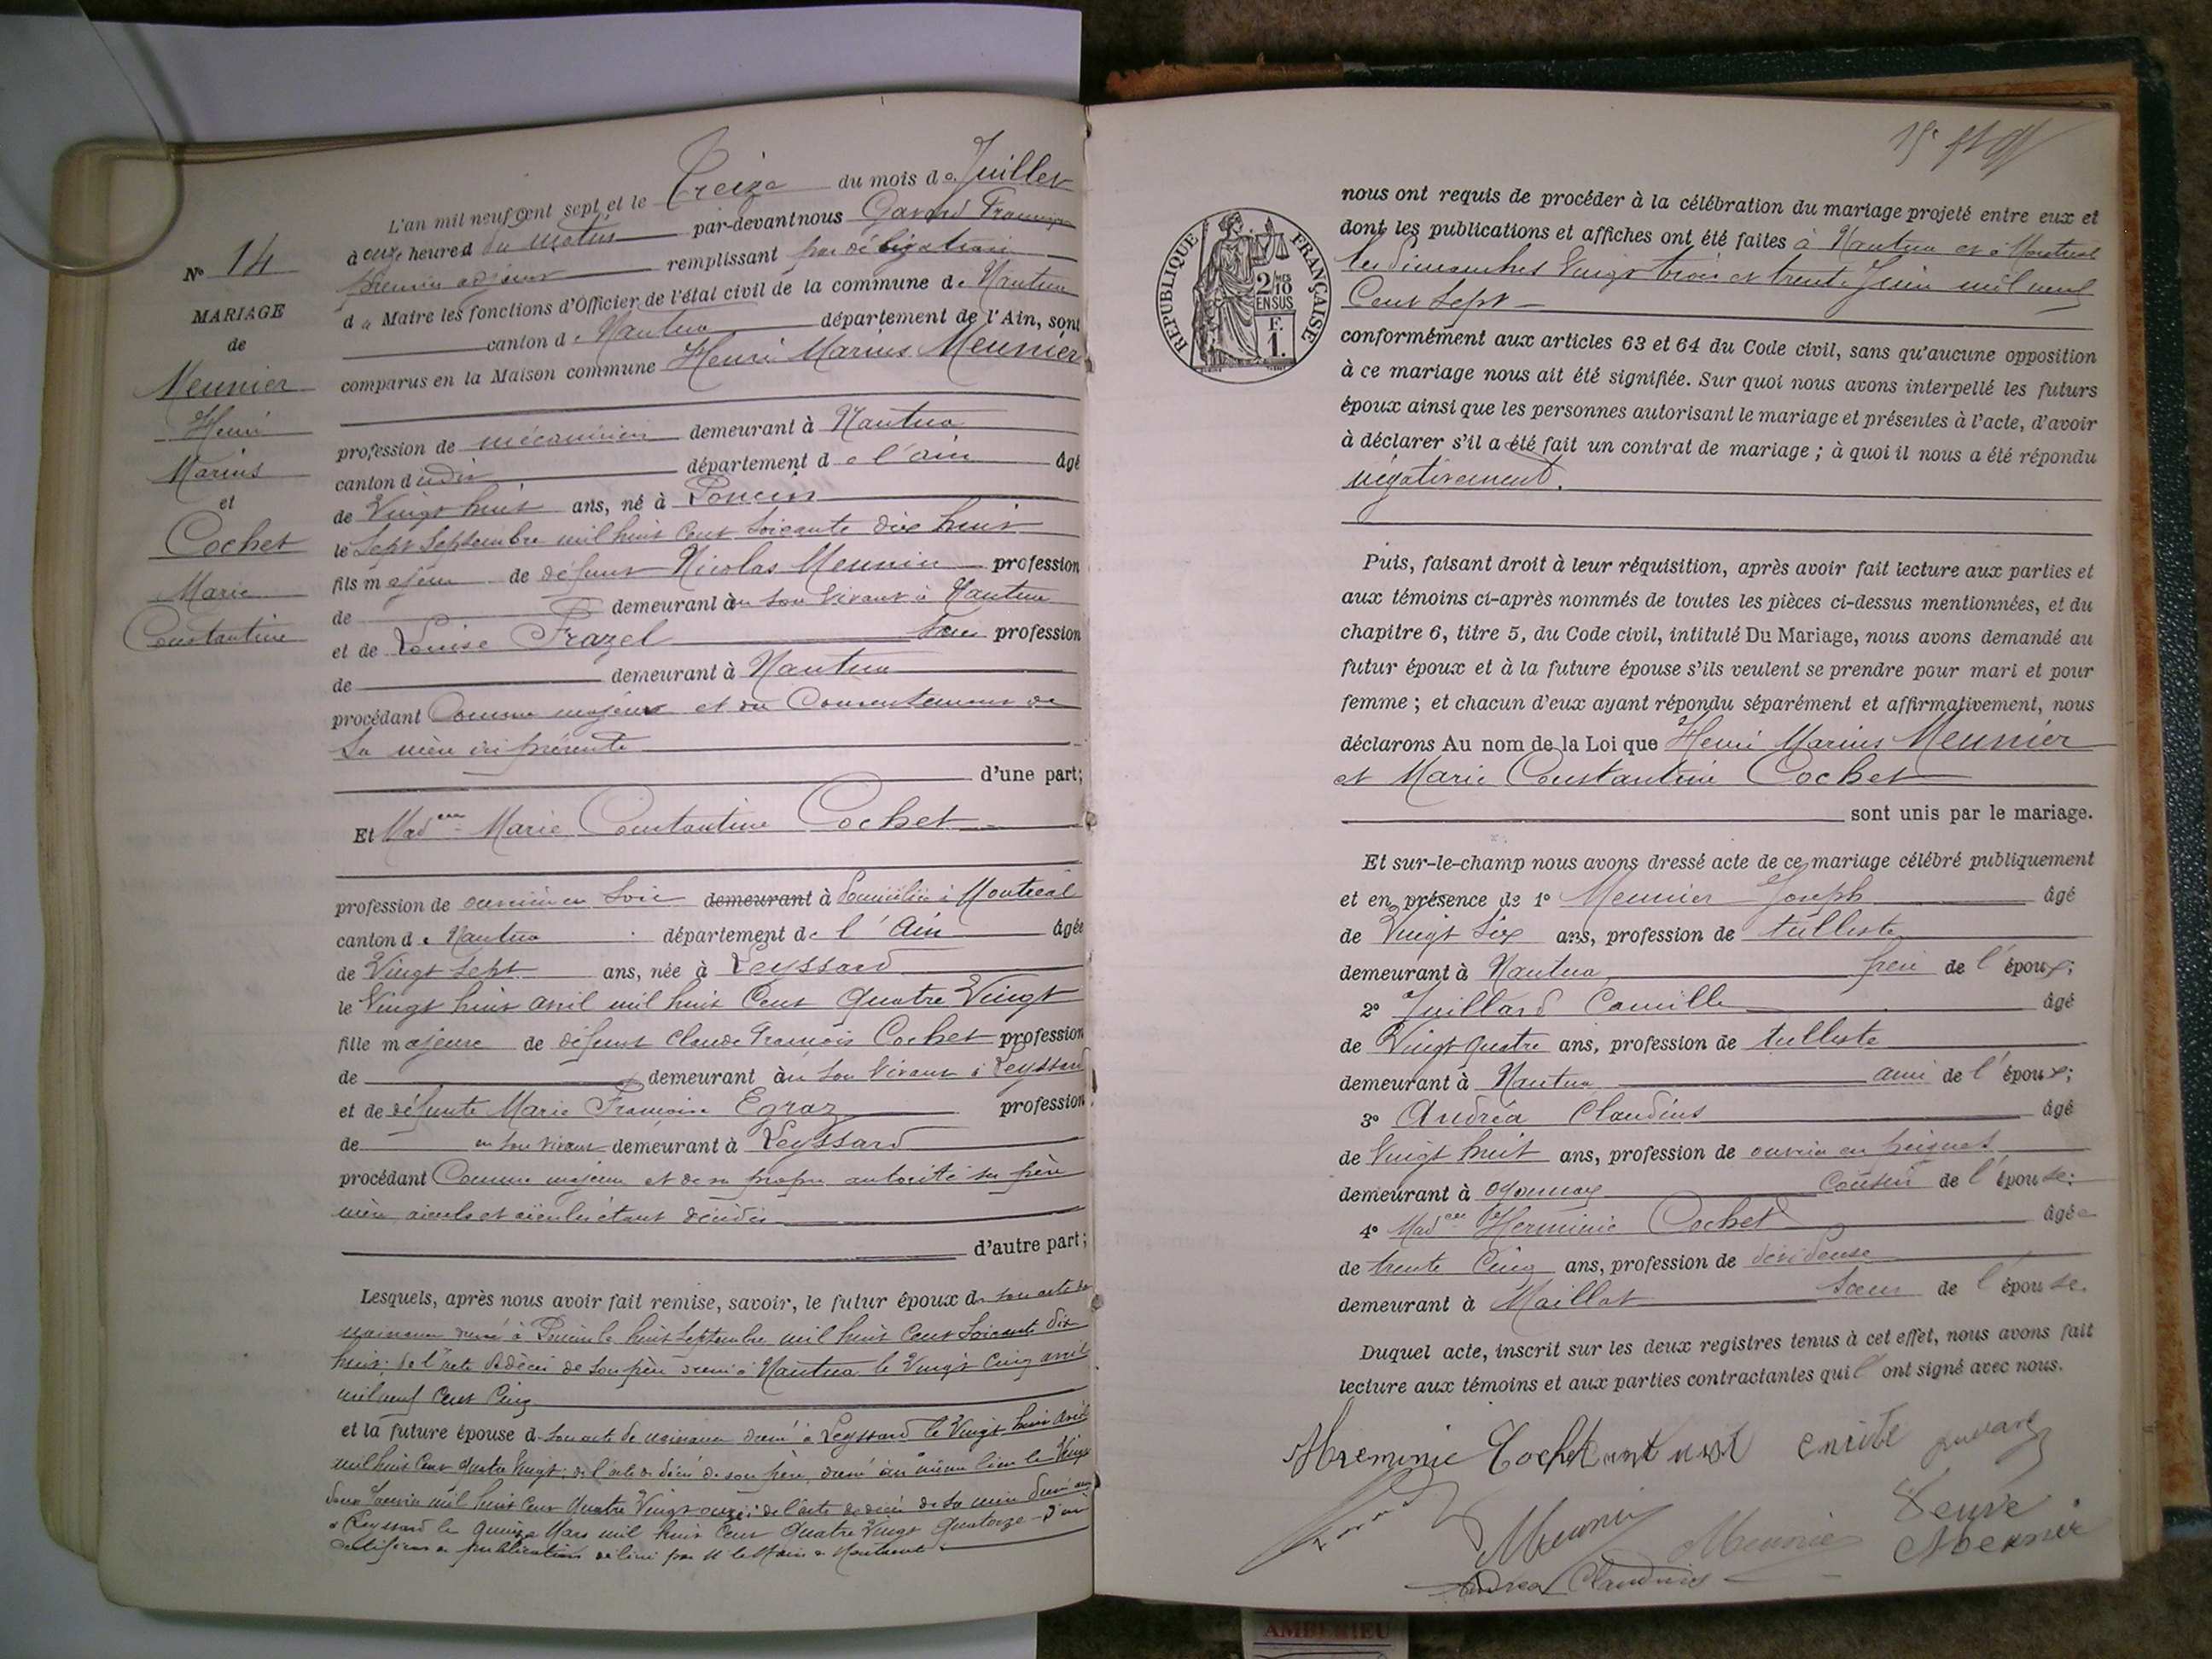 L'an mil neuf cent sept et le Treize du mois de Juillet
à onze heures du matin par-devant nous Gavard François
premier adjoint remplissant par délégation
du Maire les fonctions d'Officier de l'état civil de la commune de Nantua
canton de Nantua département de l'Ain, sont
comparus en la Maison commune Henri Marius Meunier
N° 14
MARIAGE
de
Meunier
Henri
Marius
et
Cochet
Marie
Constantine
profession de mécanicien demeurant à Nantua
canton dudit département de l'ain âgé
de Vingt huit ans, né à Poncin
le Sept Septembre mil huit cent soixante dix huit
fils majeur de défunt Nicolas Meunier profession
de demeurant en son vivant à Nantua
et de Louise Frazel profession
de demeurant à Nantua
procédant Comme majeur et du Consentement de
sa mère ici présente
d'une part;
Et Madelle Marie Constantine Cochet
profession de ouvrière en soie demeurant à domiciliée à Montréal
canton de Nantua département de l'Ain âgée
de Vingt sept ans, née à Leyssard
le Vingt huit avril mil huit Cent Quatre Vingt
fille majeure de défunt Claude François Cochet profession
de demeurant en son vivant à Leyssard
et de défunte Marie Françoise Egraz profession
de en son vivant demeurant à Leyssard
procédant Comme majeure et de sa propre autorité ses père
mère aieuls et aieules étant décédés
d'autre part;
Lesquels, après nous avoir fait remise, savoir, le futur époux de son acte de
naissance dressé à Poncin le huit Septembre mil huit Cent Soixante dix
huit; de l'acte de décès de son père dressé à Nantua le Vingt Cinq avril
mil neuf Cent Cinq
et la future épouse de son acte de naissance dressé à Leyssard le Vingt huit avril
mil huit Cent Quatre Vingt; de l'acte de décès de son père, dressé au même lieu le Vingt
deux Janvier mil huit Cent Quatre Vingt onze; de l'acte de décès de sa mère dressé
à Leyssard le quinze Mars mil huit Cent Quatre Vingt Quatorze - d'un
certificat de publication délivré par M le Maire de
nous ont requis de procéder à la célébration du mariage projeté entre eux et
dont les publications et affiches ont été faites à Nantua et à Montréal
les dimanches Vingt trois et trente Juin mil neuf
Cent Sept
RÉPUBLIQUE FRANÇAISE
2/10 EN SUS
F. 1.
conformément aux articles 63 et 64 du Code civil, sans qu'aucune opposition
à ce mariage nous ait été signifiée. Sur quoi nous avons interpellé les futurs
époux ainsi que les personnes autorisant le mariage et présentes à l'acte, d'avoir
à déclarer s'il a été fait un contrat de mariage ; à quoi il nous a été répondu
négativement.
Puis, faisant droit à leur réquisition, après avoir fait lecture aux parties et
aux témoins ci-après nommés de toutes les pièces ci-dessus mentionnées, et du
chapitre 6, titre 5, du Code civil, intitulé Du Mariage, nous avons demandé au
futur époux et à la future épouse s'ils veulent se prendre pour mari et pour
femme ; et chacun d'eux ayant répondu séparément et affirmativement, nous
déclarons Au nom de la Loi que Henri Marius Meunier
et Marie Constantine Cochet
sont unis par le mariage.
Et sur-le-champ nous avons dressé acte de ce mariage célébré publiquement
et en présence de 1° Meunier Joseph âgé
de Vingt Six ans, profession de tulliste
demeurant à Nantua frère de l'époux;
2° Juillard Camille âgé
de Vingt quatre ans, profession de tulliste
demeurant à Nantua ami de l'époux;
3° Andréa Claudius âgé
de Vingt huit ans, profession de ouvrier en peignes
demeurant à Oyonnax Cousin de l'épouse;
4° Madelle Herminie Cochet âgée
de trente Cinq ans, profession de dévideuse
demeurant à Maillat Soeur de l'épouse.
Duquel acte, inscrit sur les deux registres tenus à cet effet, nous avons fait
lecture aux témoins et aux parties contractantes qui l'ont signé avec nous.
Hreminie Cochet
Meunier Meunier Veuve
Meunier
Andrea Claudius
AMBERIEU